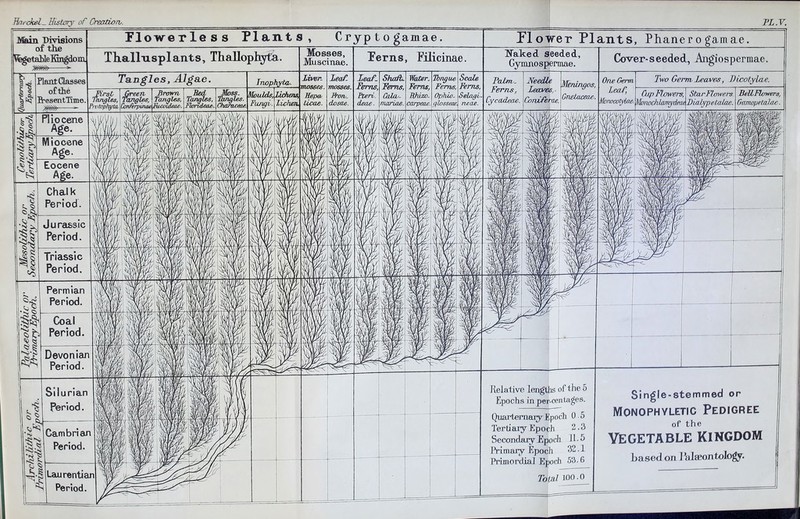 Haeckel_ History of Creation.
PL.V.
Main Divisions
of the
Vegetable Kingdom.
Flowerless Plants, Cryptogamae.
Flower Plants, Phanerogamae.
Thallusplants, Thallophyta.
Mosses,
Muscinae.
Ferns, Filicinae.
Naked seeded,
Gymnospermae.
Cover-seeded, Angiospermae.
Quarternary
Epoch.
Plant Classes
of the
Present Time.
Tangles, Algae.
Inophyta.
First
Tangles,
Green
Tangles,
Brown
Tangles,
Fucoideae.
Red
Tangles,
Florideae.
Moss.
Tangles.
Characeae.
Moulds,
Fungi.
Lichens,
Lichen.
Liver.
mosses.
Hepa-
ticae.
Leaf.
mosses.
Fron.
dosae.
Leaf.
Ferns,
Pteri-
deae.
Shaft.
Ferns,
Cala-
mariae.
Water.
Ferns,
Rhizo-
carpeae.
Tongue
Ferns,
Ophio-
glosseae.
Scale
Ferns,
Selagi-
neae.
Palm.
Ferns,
Cycadeae.
Needle
Leaves.
Coniferae.
Meningos,
Gnetaceae.
One Germ
Leaf,
Monocotylae.
Two Germ Leaves, Dicotylae.
Cup Flowers,
Monochlamydeae
Star Flowers
Dialypetalae.
Bell Flowers,
Gamopetalae.
Cenolithic or
Tertiary Epoch.
Pliocene
Age.
Miocene
Age.
Eocene
Age.
Mesolithic or
Secondary Epoch.
Chalk
Period.
Jurassic
Period.
Triassic
Period.
Palaeolithic or
Primary Epoch.
Permian
Period.
Coal
Period.
Devonian
Period.
Archilithic or
Primordial Epoch.
Silurian
Period.
Cambrian
Period.
Laurentian
Period.
Relative lengths of the 5
Epochs in percentages.
Quarternary Epoch 0.5
Tertiary Epoch 2.3
Secondary Epoch 11.5
Primary Epoch 32.1
Primordial Epoch 53.6
Total 100.0
Single-stemmed or
MONOPHYLETIC PEDIGREE
of the
VEGETABLE KINGDOM
based on Palæontology.